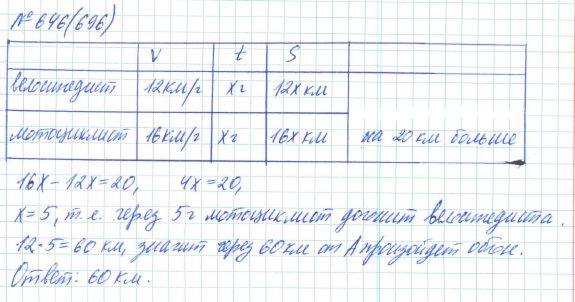 № 646(696)
V t S
велосипедист 12км/г хг 12х км
мотоциклист 16км/г хг 16х км на 20 км больше
16х - 12х = 20, 4х = 20,
х = 5, т.е. через 5г мотоциклист догонит велосипедиста.
12·5 = 60 км, значит через 60 км от А произойдет обгон.
Ответ: 60 км.